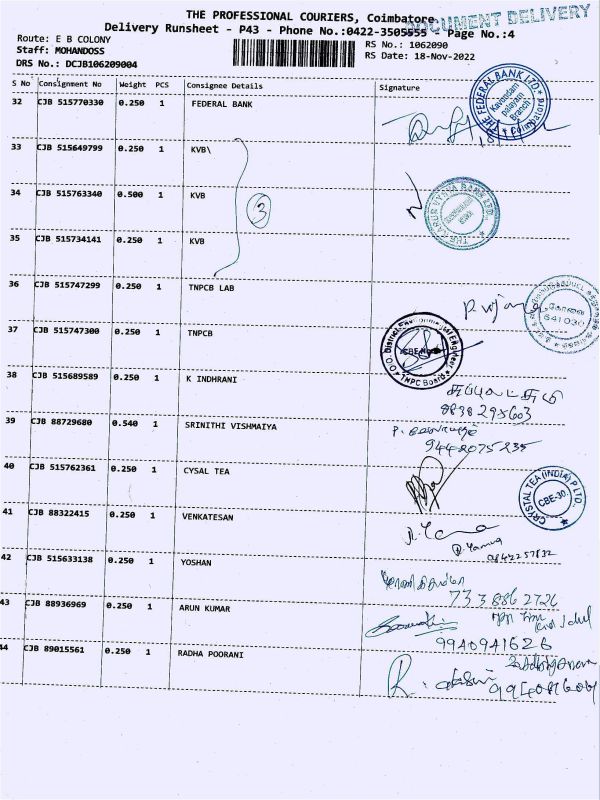 THE PROFESSIONAL COURIERS, Coimbatore
DOCUMENT DELIVERY
Delivery Runsheet - P43 - Phone No.:0422-3505555 - Page No.:4
Route: E B COLONY
RS No.: 1062090
Staff: MOHANDOSS
RS Date: 18-Nov-2022
DRS No.: DCJB106209004
S No Consignment No Weight PCS Consignee Details Signature
32 CJB 515770330 0.250 1 FEDERAL BANK
THE FEDERAL BANK LTD. Kavundam palayam Branch Coimbatore
33 CJB 515649799 0.250 1 KVB\
34 CJB 515763340 0.500 1 KVB
3
THE KARUR VYSYA BANK LTD.
35 CJB 515734141 0.250 1 KVB
36 CJB 515747299 0.250 1 TNPCB LAB
கோவை
641030
37 CJB 515747300 0.250 1 TNPCB
38 CJB 515689589 0.250 1 K INDHRANI
8838295603
39 CJB 88729680 0.540 1 SRINITHI VISHMAIYA
9442075235
40 CJB 515762361 0.250 1 CYSAL TEA
CRYSTAL TEA (INDIA) P LTD. CBE-30.
41 CJB 88322415 0.250 1 VENKATESAN
42 CJB 515633138 0.250 1 YOSHAN
43 CJB 88936969 0.250 1 ARUN KUMAR
9940941626
44 CJB 89015561 0.250 1 RADHA POORANI